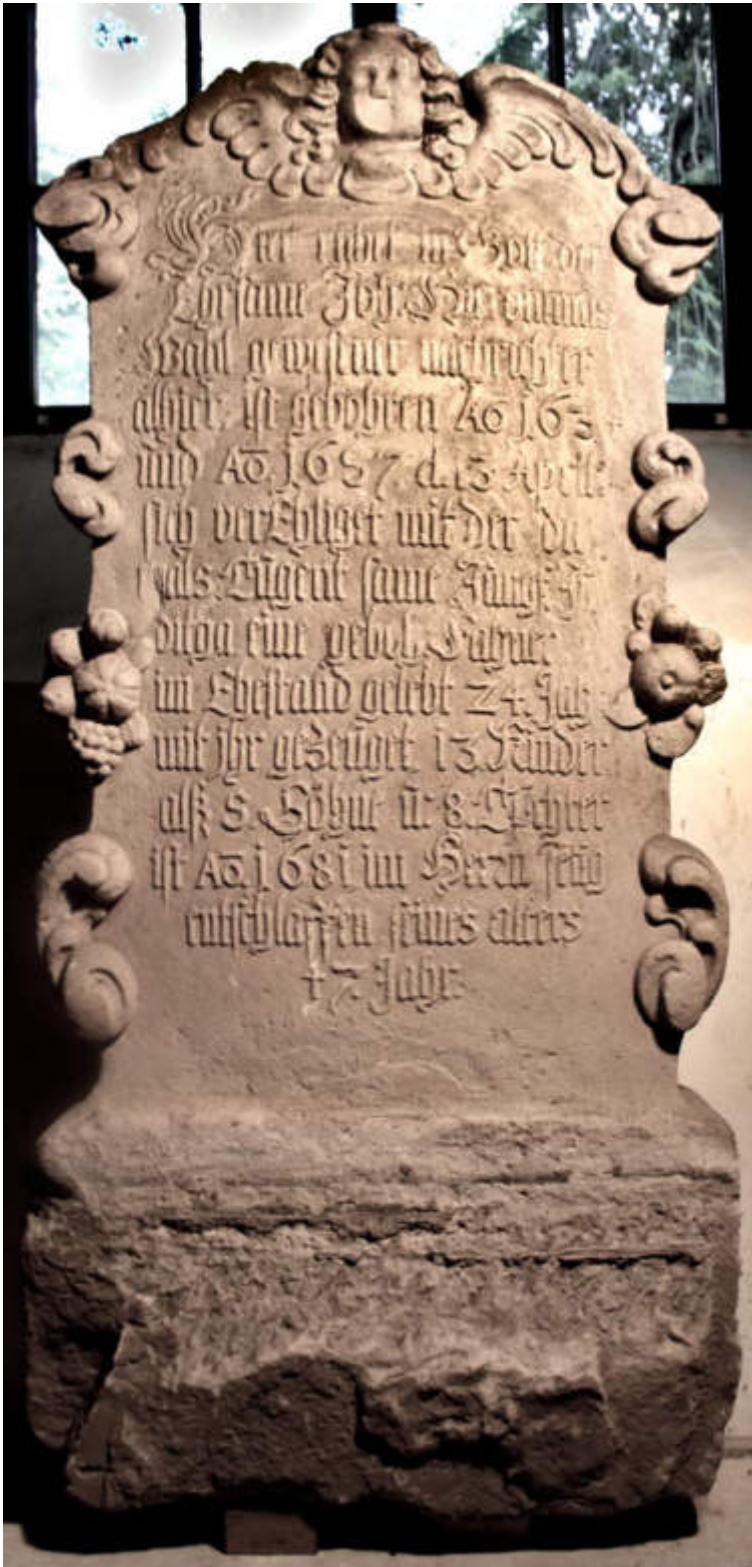 Hier ruhet in Gott der
Ehrsame Joh: Hieronimus
Wahl gewesener mitrichter
alhier. ist gebohren Ao 163
und Ao. 1657 d. 13 April:
sich verEhliget mit der da
mals: Tugent same Jungf:
eine geboh.
im Ehestand gelebt 24. Jahr
mit jhr geZeuget 13. Kinder
alß 5. Söhne u: 8. Töchter
ist Ao. 1681 im Herrn selig
entschlaffen seines alters
47. Jahr.